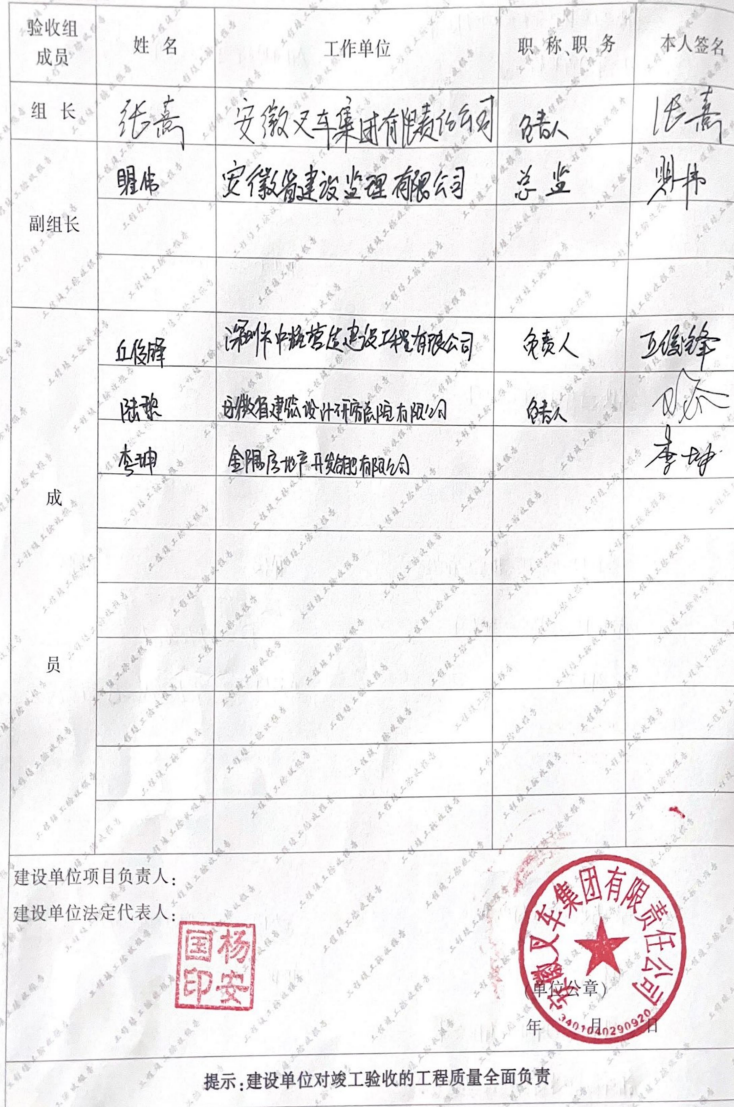 验收组成员 姓 名 工作单位 职 称、职 务 本人签名
组 长 张熹 安徽叉车集团有限责任公司 负责人 张熹
副组长 伟 安徽省建设监理有限公司 总监 伟
丘俊锋 深圳市中 建设工程有限公司 负责人 丘俊锋
陆 安徽省建筑设计研究总院有限公司 负责人
李坤 金隅房地产开发合肥有限公司 李坤
成
员
建设单位项目负责人:
建设单位法定代表人:
杨安国印
安徽叉车集团有限责任公司
(单位公章)
年 月 日
3401040290920
提示:建设单位对竣工验收的工程质量全面负责
工程竣工验收报告